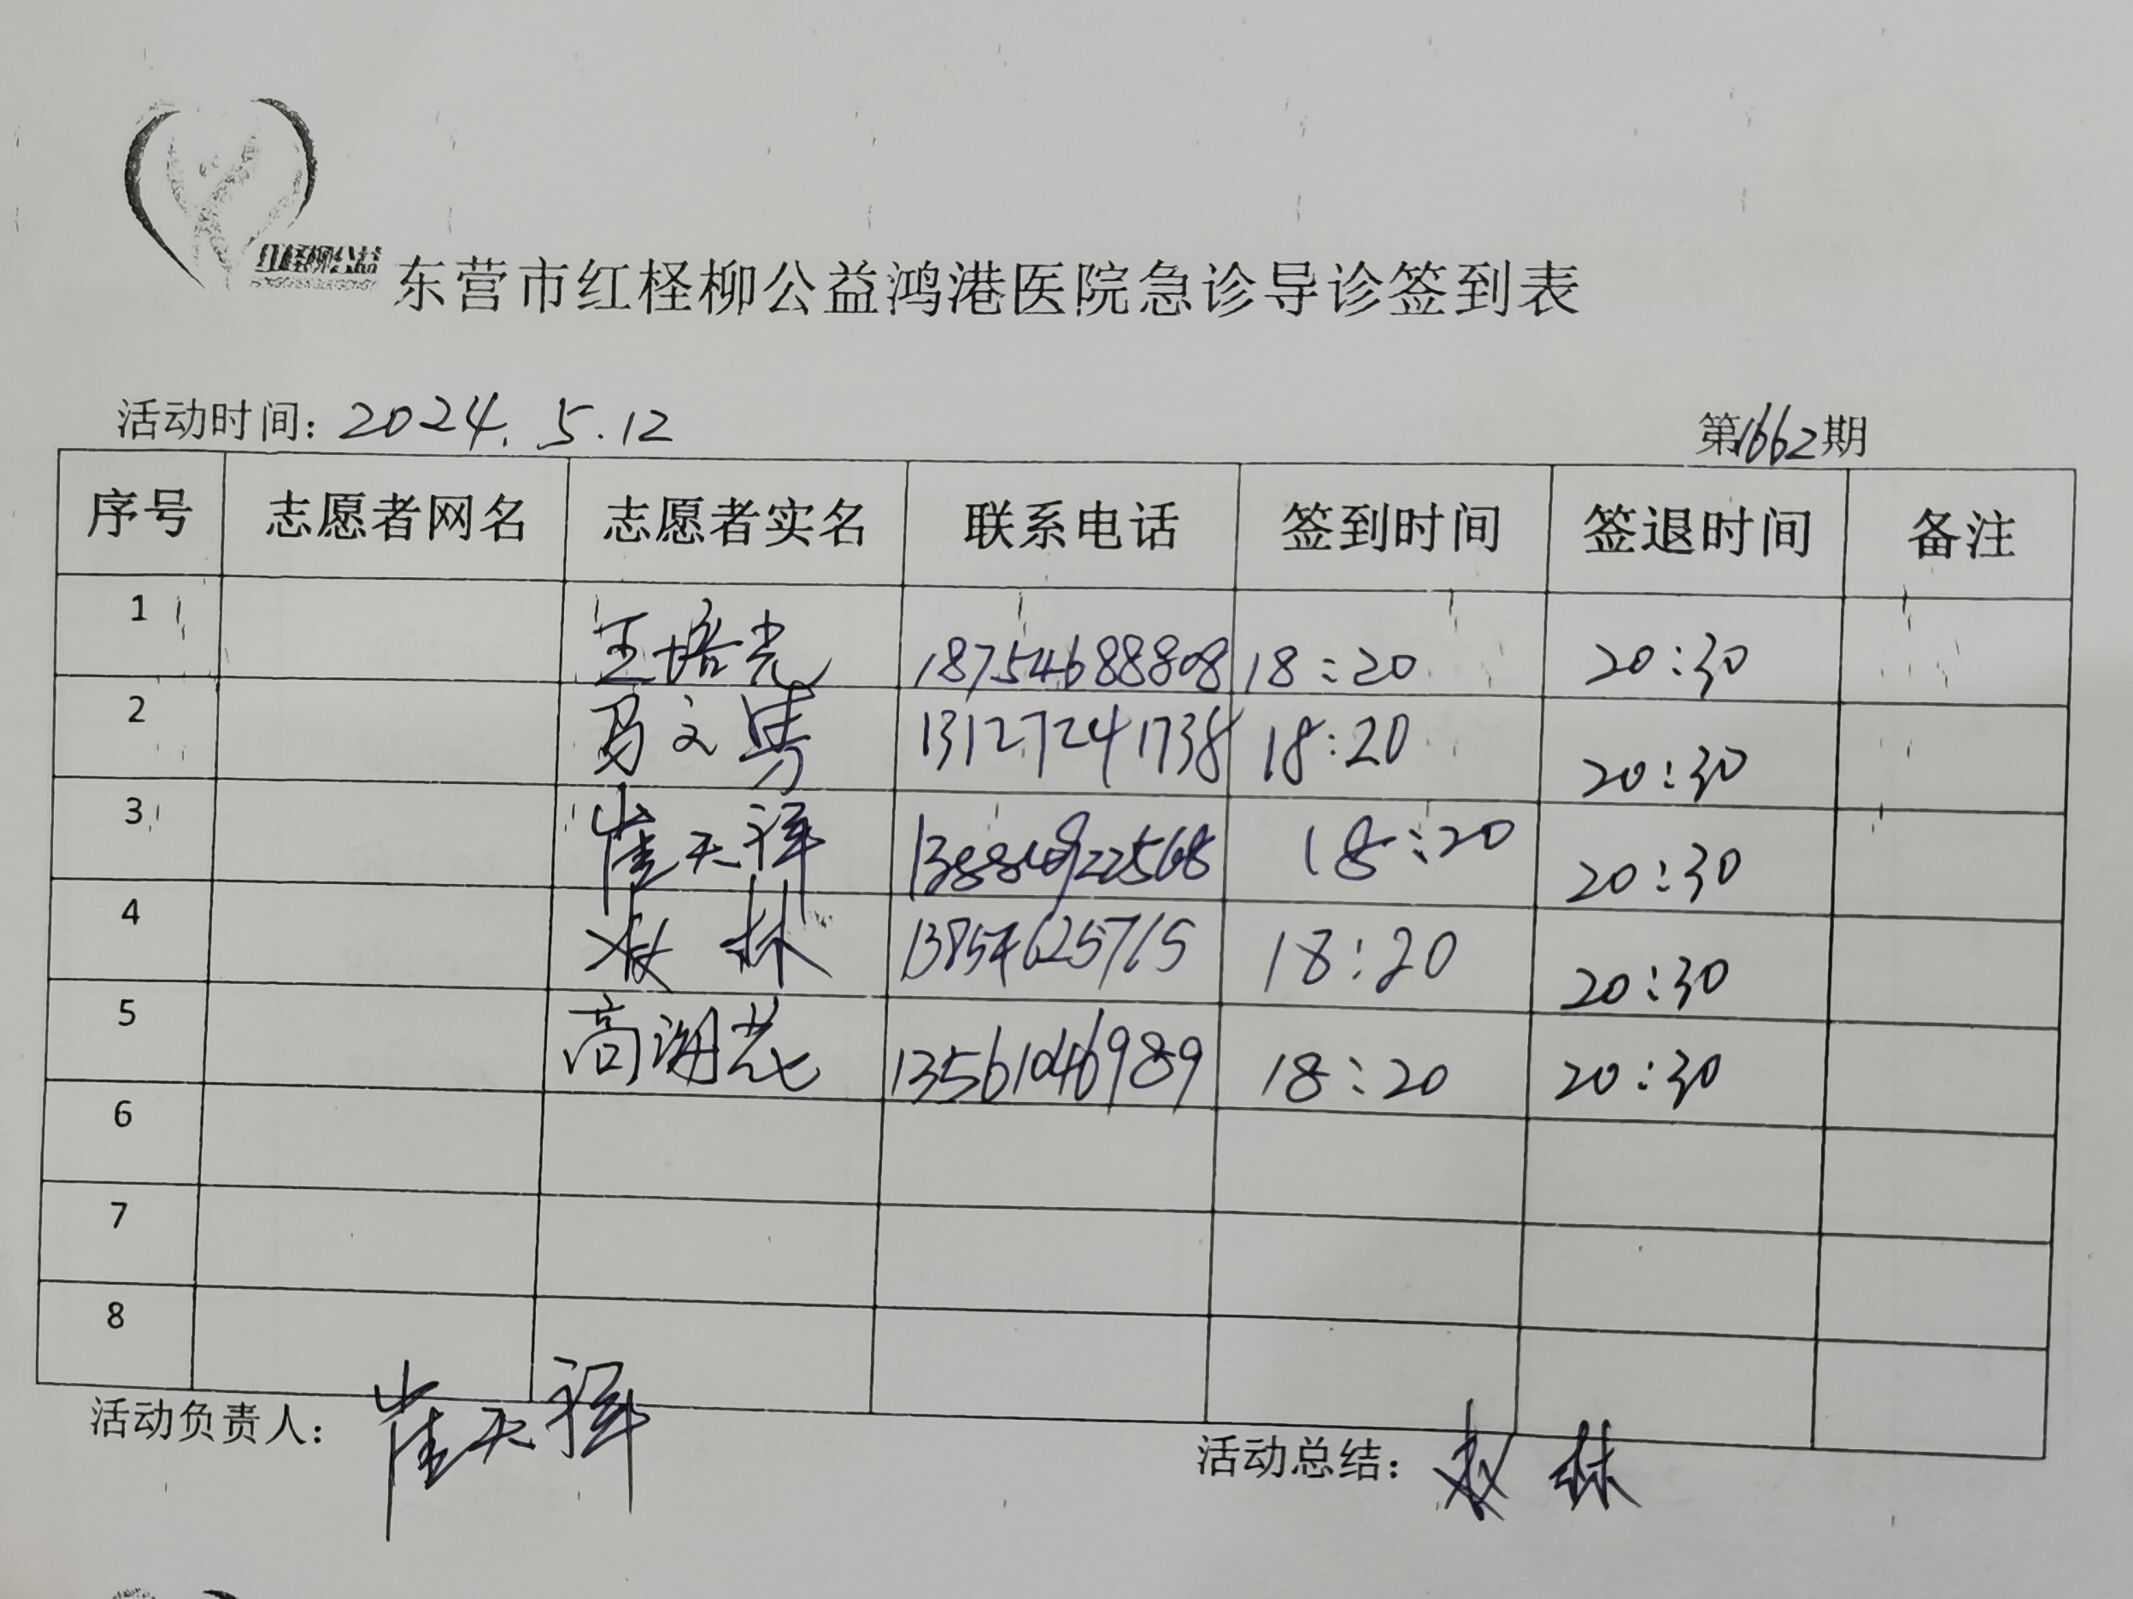 红柽柳公益
东营市红柽柳公益鸿港医院急诊导诊签到表
活动时间: 2024.5.12 第1662期
序号 志愿者网名 志愿者实名 联系电话 签到时间 签退时间 备注
1 王培光 18754688808 18:20 20:30
2 马文勇 13127241738 18:20 20:30
3 崔天祥 18:20 20:30
4 林 13854625715 18:20 20:30
5 高湖花 13561046989 18:20 20:30
6
7
8
活动负责人: 崔天祥 活动总结: 林